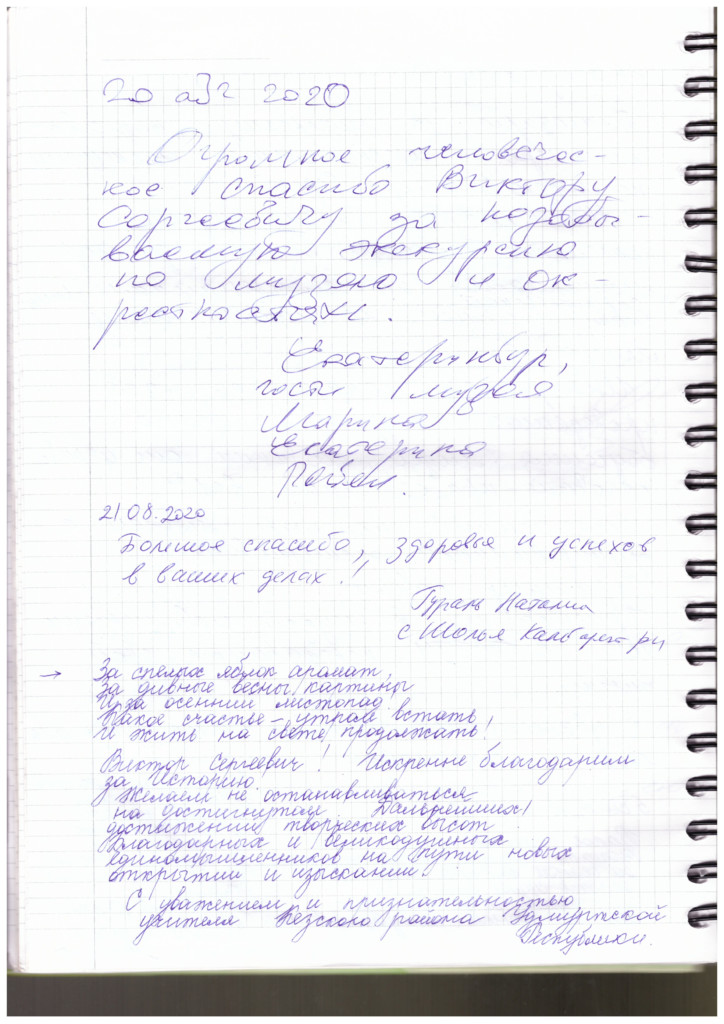 20 авг 2020
Огромное человечес-
кое спасибо Виктору
Сергеевичу за незабы-
ваемую экскурсию
по музею и ок-
рестностях.
Екатеринбург,
гости музея
Марина
Екатерина
21 08. 2020
Большое спасибо, здоровья и успехов
в ваших делах!
Наталия
с Шолья
→ За спелых яблок аромат,
За дивные весны картины
И за осенний листопад.
Какое счастье – утром встать,
И жить на свете продолжать!
Виктор Сергеевич! Искренне благодарим
за Историю!
Желаем не останавливаться
на достигнутом. Дальнейших
достижений творческих высот.
Благодарных и великодушных
единомышленников на пути новых
открытий и изысканий.
С уважением и признательностью
учителя Кезского района Удмуртской
Республики.